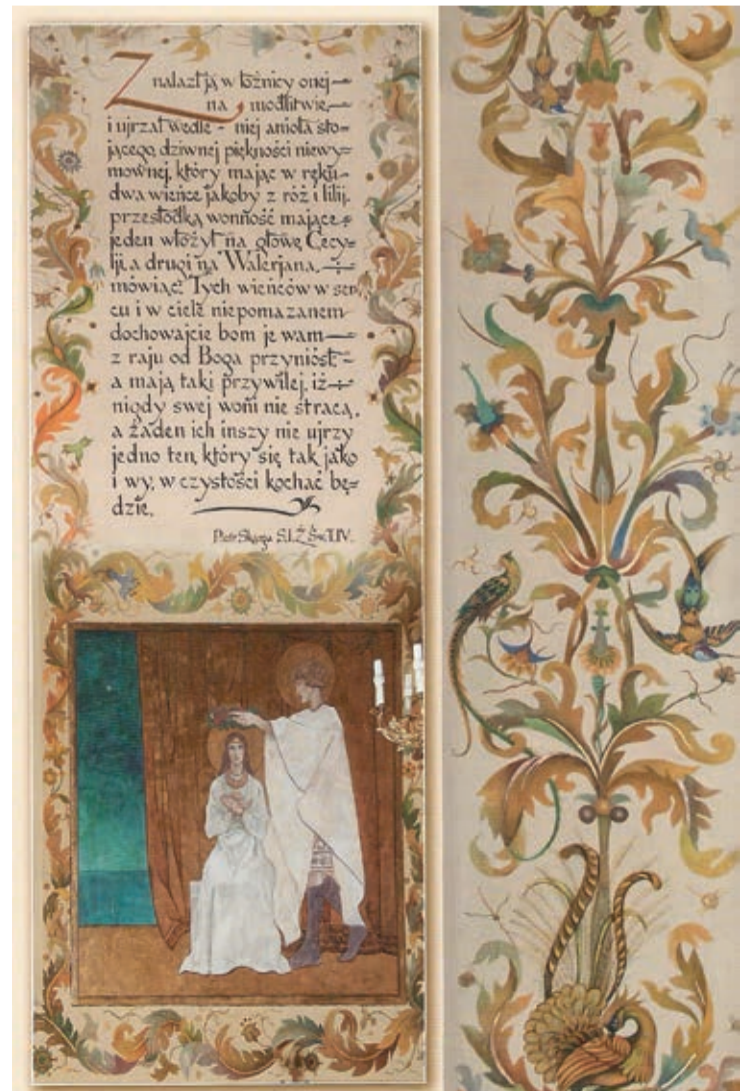 Znalazł ją w łożnicy onej
na modlitwie,
i ujrzał wedle - niej anioła sto=
jącego, dziwnej piękności niewy=
mownej, który mając w ręku
dwa wieńce jakoby z róż i lilij.
przesłodką wonność mające
jeden włożył na głowę Cecy=
lji, a drugi na Walerjana,
mówiąc: Tych wieńców w ser=
cu i w ciele niepomazanem
dochowajcie bom je wam
z raju od Boga przyniósł
a mają taki przywilej, iż
nigdy swej woni nie stracą,
a żaden ich inszy nie ujrzy
jedno ten, który się tak jako
i wy, w czystości kochać bę=
dzie.
Piotr Skarga S.I. Ż. Św. T.IV.